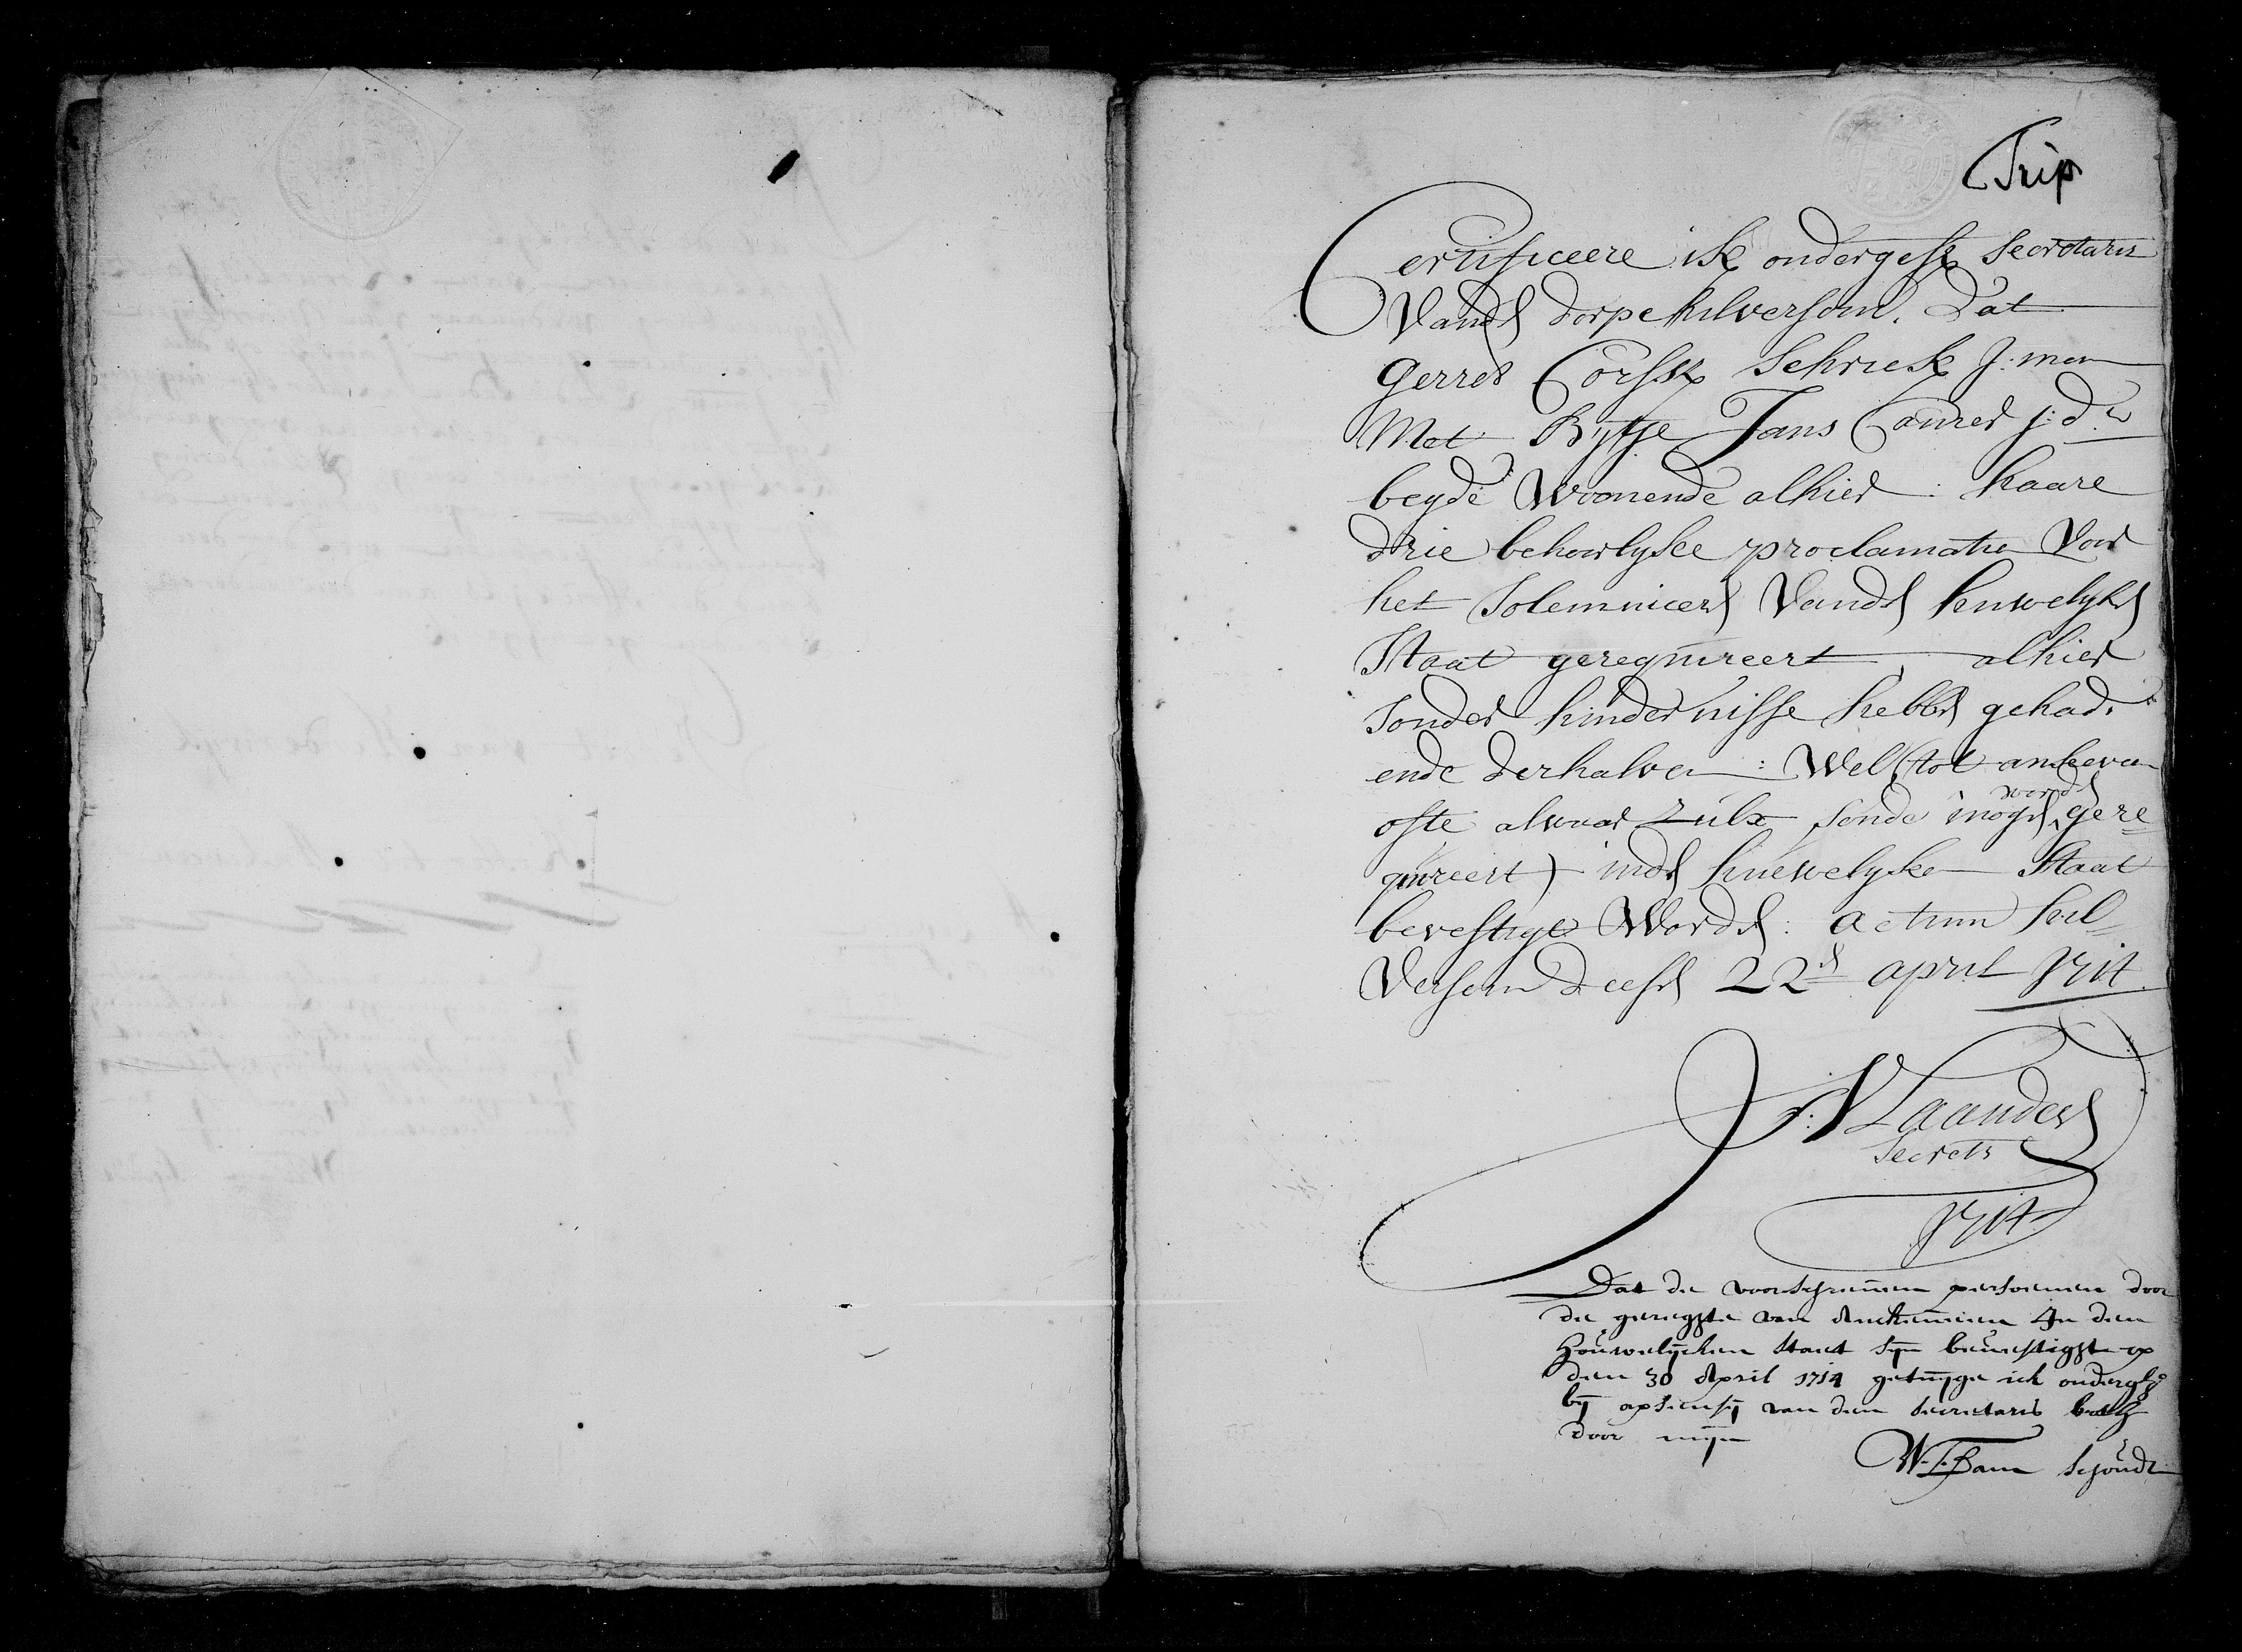 Trip
Certificeere ik ondergesz Secretaris
Vand dorpe hilversom. Dat
Gerret Corssz Schriek J: man
Met Bijtje Jans Coürer j: dr
beyde Woonende alhier: haare
drie behoorlyke proclamatie Voor
het Solemniceren Vanden huwelyken
Staat gerequireert, alhier
Sonder hindernisse hebben gehad.
ende derhalven: Wel (tot ankeveen
ofte alwaar zulx soude mogen worden gere=
quireert) inden huewelyke Staat
bevestigt Worden: actum hil=
Versom deesen 22en april 1714
J: V Laanderen
Secrets
1714
Dat de voorschreven persoenen door
de geregte van Anckeveen In den
houwelijcken staet sijn bevestight op
den 30 April 1714 getuijge ick ondergesz
bij apsensij van den secretaris
door mijn
W. J. Bam schoudt